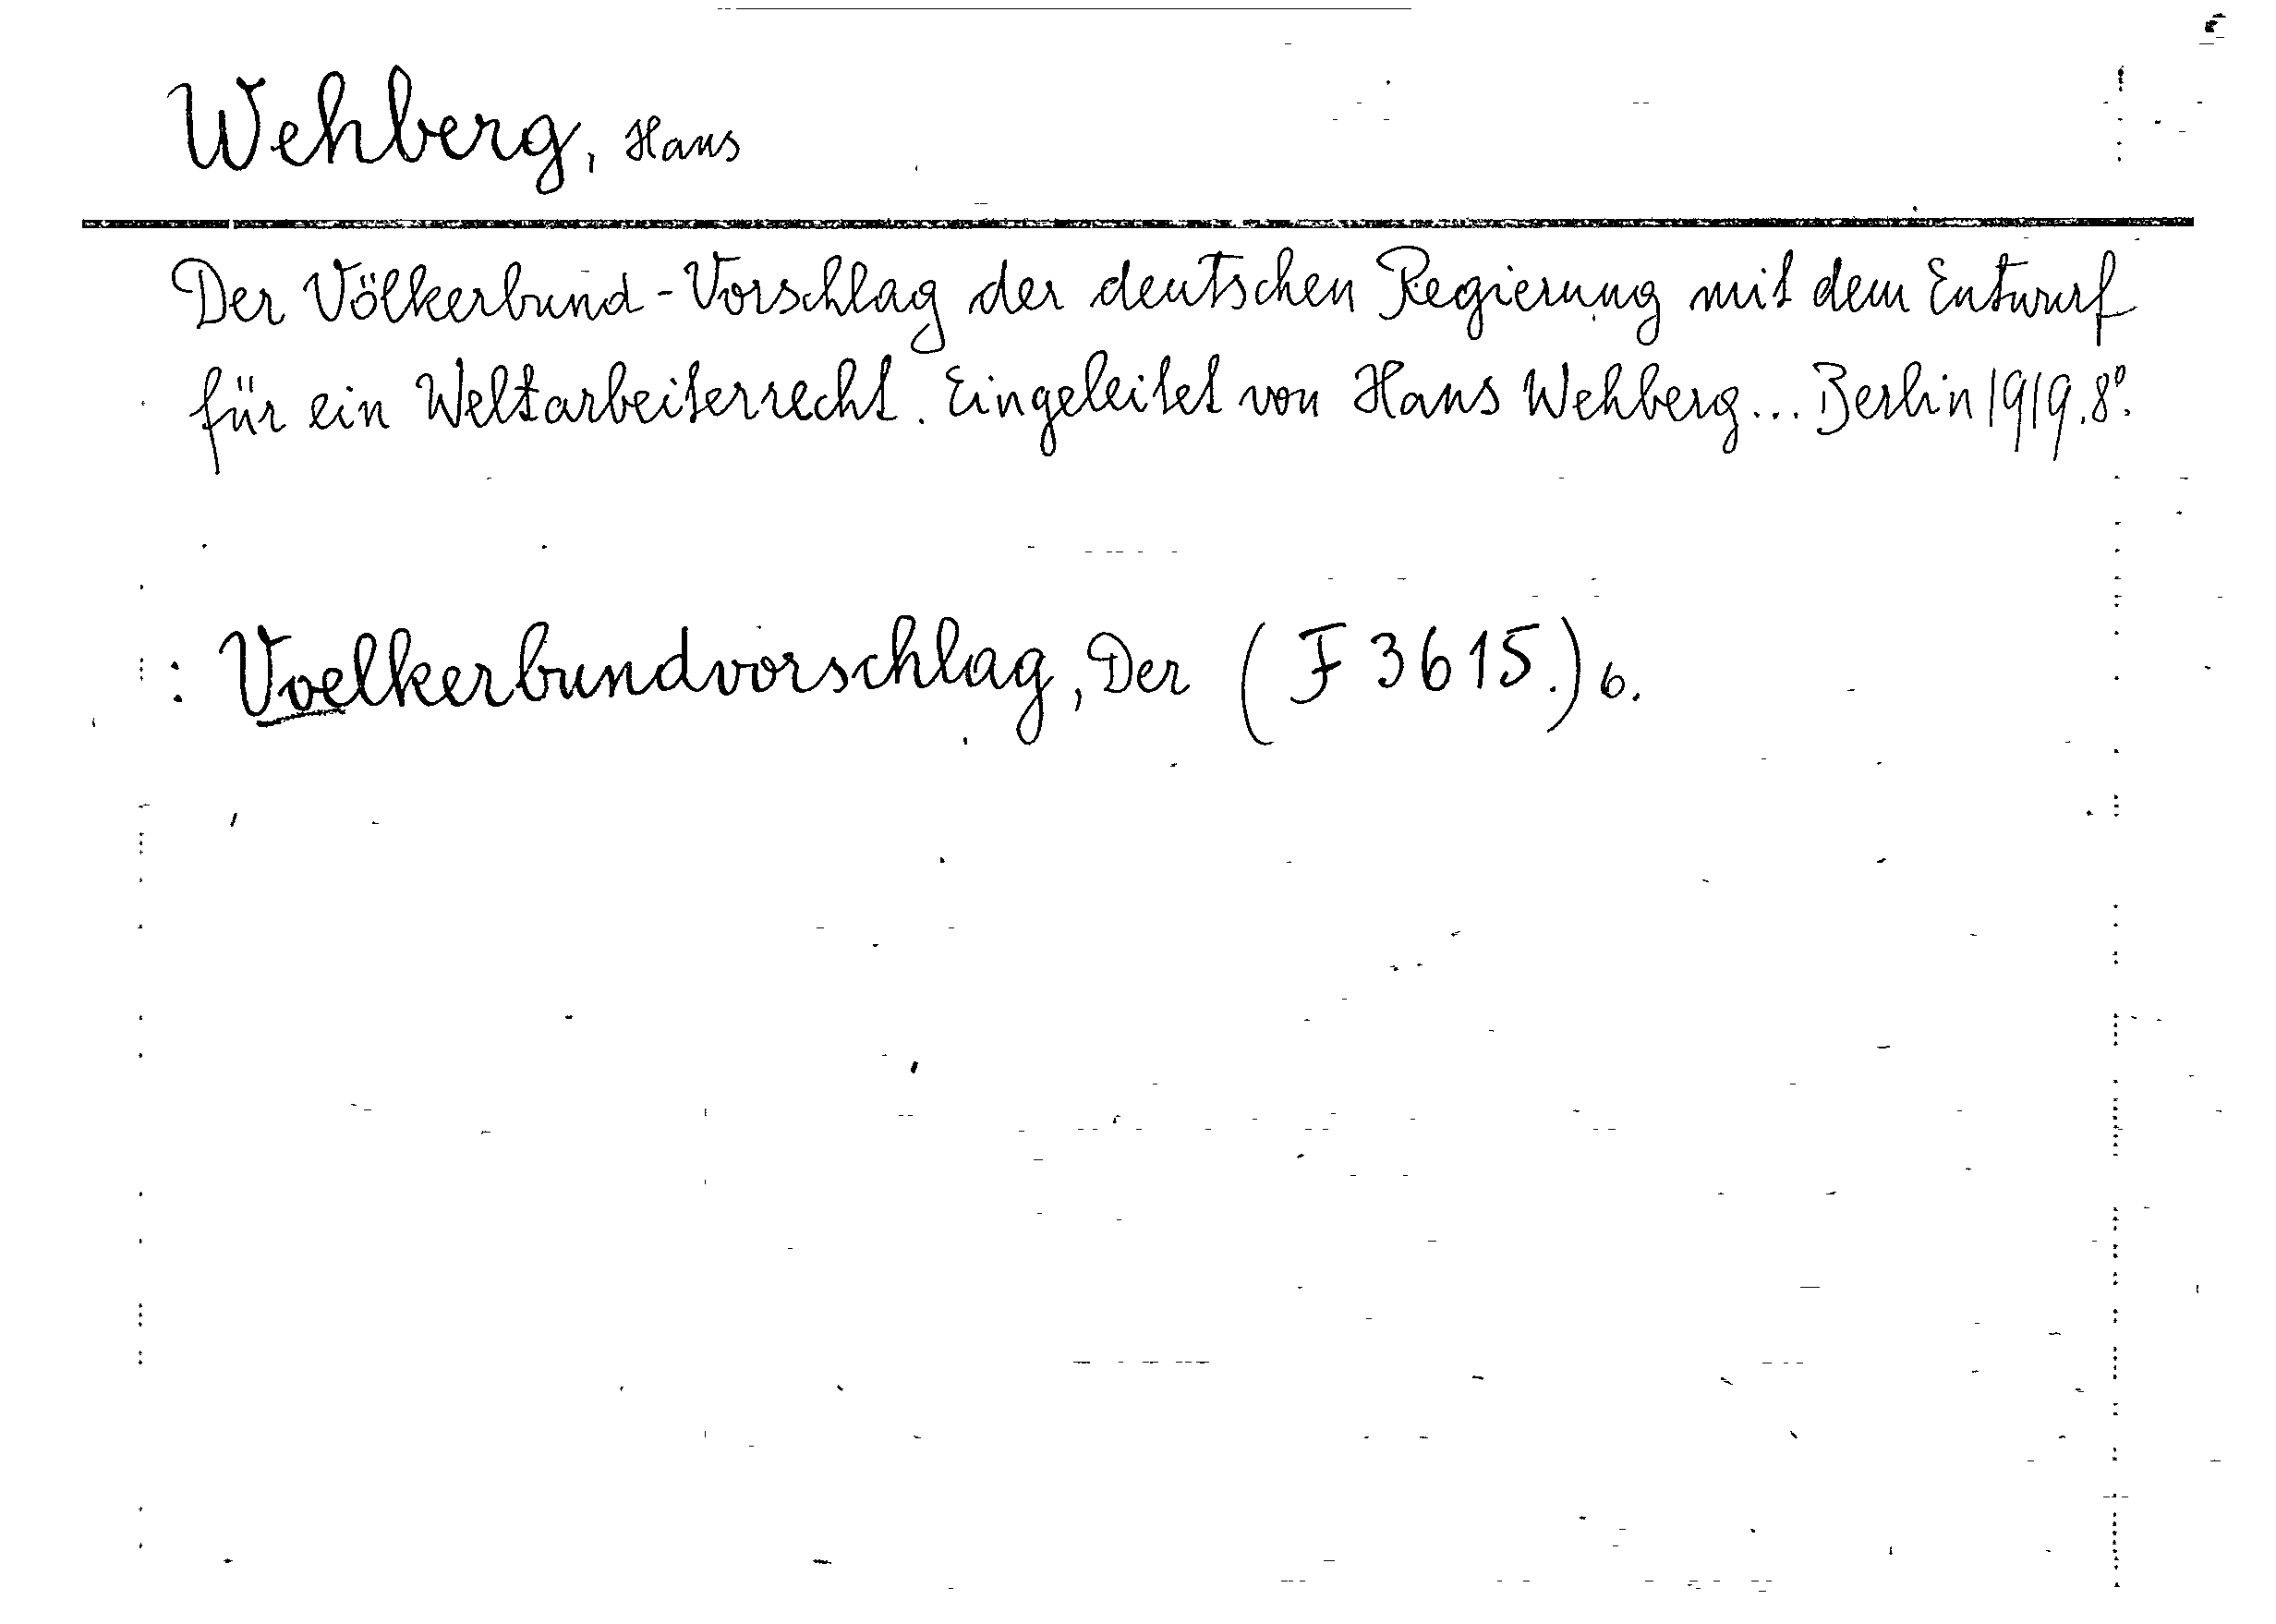 Wehberg, Hans
Der Völkerbund-Vorschlag der deutschen Regierung mit dem Entwurf
für ein Weltarbeiterrecht. Eingeleitet von Hans Wehberg... Berlin 1919. 8°.
: Voelkerbundvorschlag, Der (F 3615.) 6.